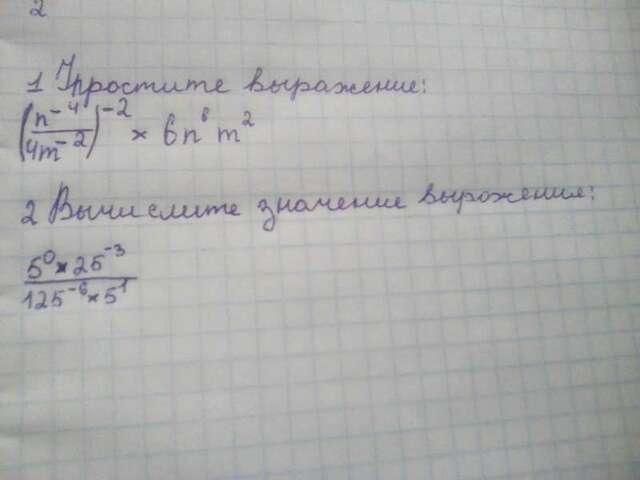 2
1 Упростите выражение:
(n⁻⁴/4m⁻²)⁻² × 6n⁶m²
2 Вычислите значение выражения:
5⁰×25⁻³
125⁻⁶×5¹